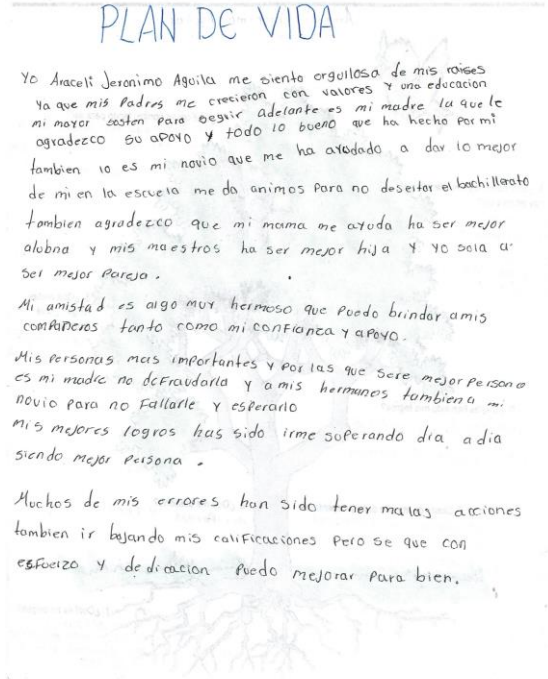 PLAN DE VIDA
Yo Araceli Jeronimo Aguila me siento orgullosa de mis raises
ya que mis Padres me crecieron con valores y una educacion
mi mayor sosten para seguir adelante es mi madre la que le
agradezco su apoyo y todo lo bueno que ha hecho por mi
tambien lo es mi novio que me ha ayudado a dar lo mejor
de mi en la escuela me da animos para no desertar el bachillerato
tambien agradezco que mi mama me ayuda ha ser mejor
alubna y mis maestros ha ser mejor hija y yo sola a
ser mejor Pareja.
Mi amistad es algo muy hermoso que puedo brindar a mis
compañeros tanto como mi confianza y apoyo.
Mis personas mas importantes y por las que sere mejor persona
es mi madre no defraudarla y a mis hermanos tambien a mi
novio para no Fallarle y esperarlo
mis mejores logros has sido irme superando dia a dia
siendo mejor persona.
Muchos de mis errores han sido tener malas acciones
tambien ir bajando mis calificaciones pero se que con
esfuerzo y dedicacion puedo mejorar para bien.